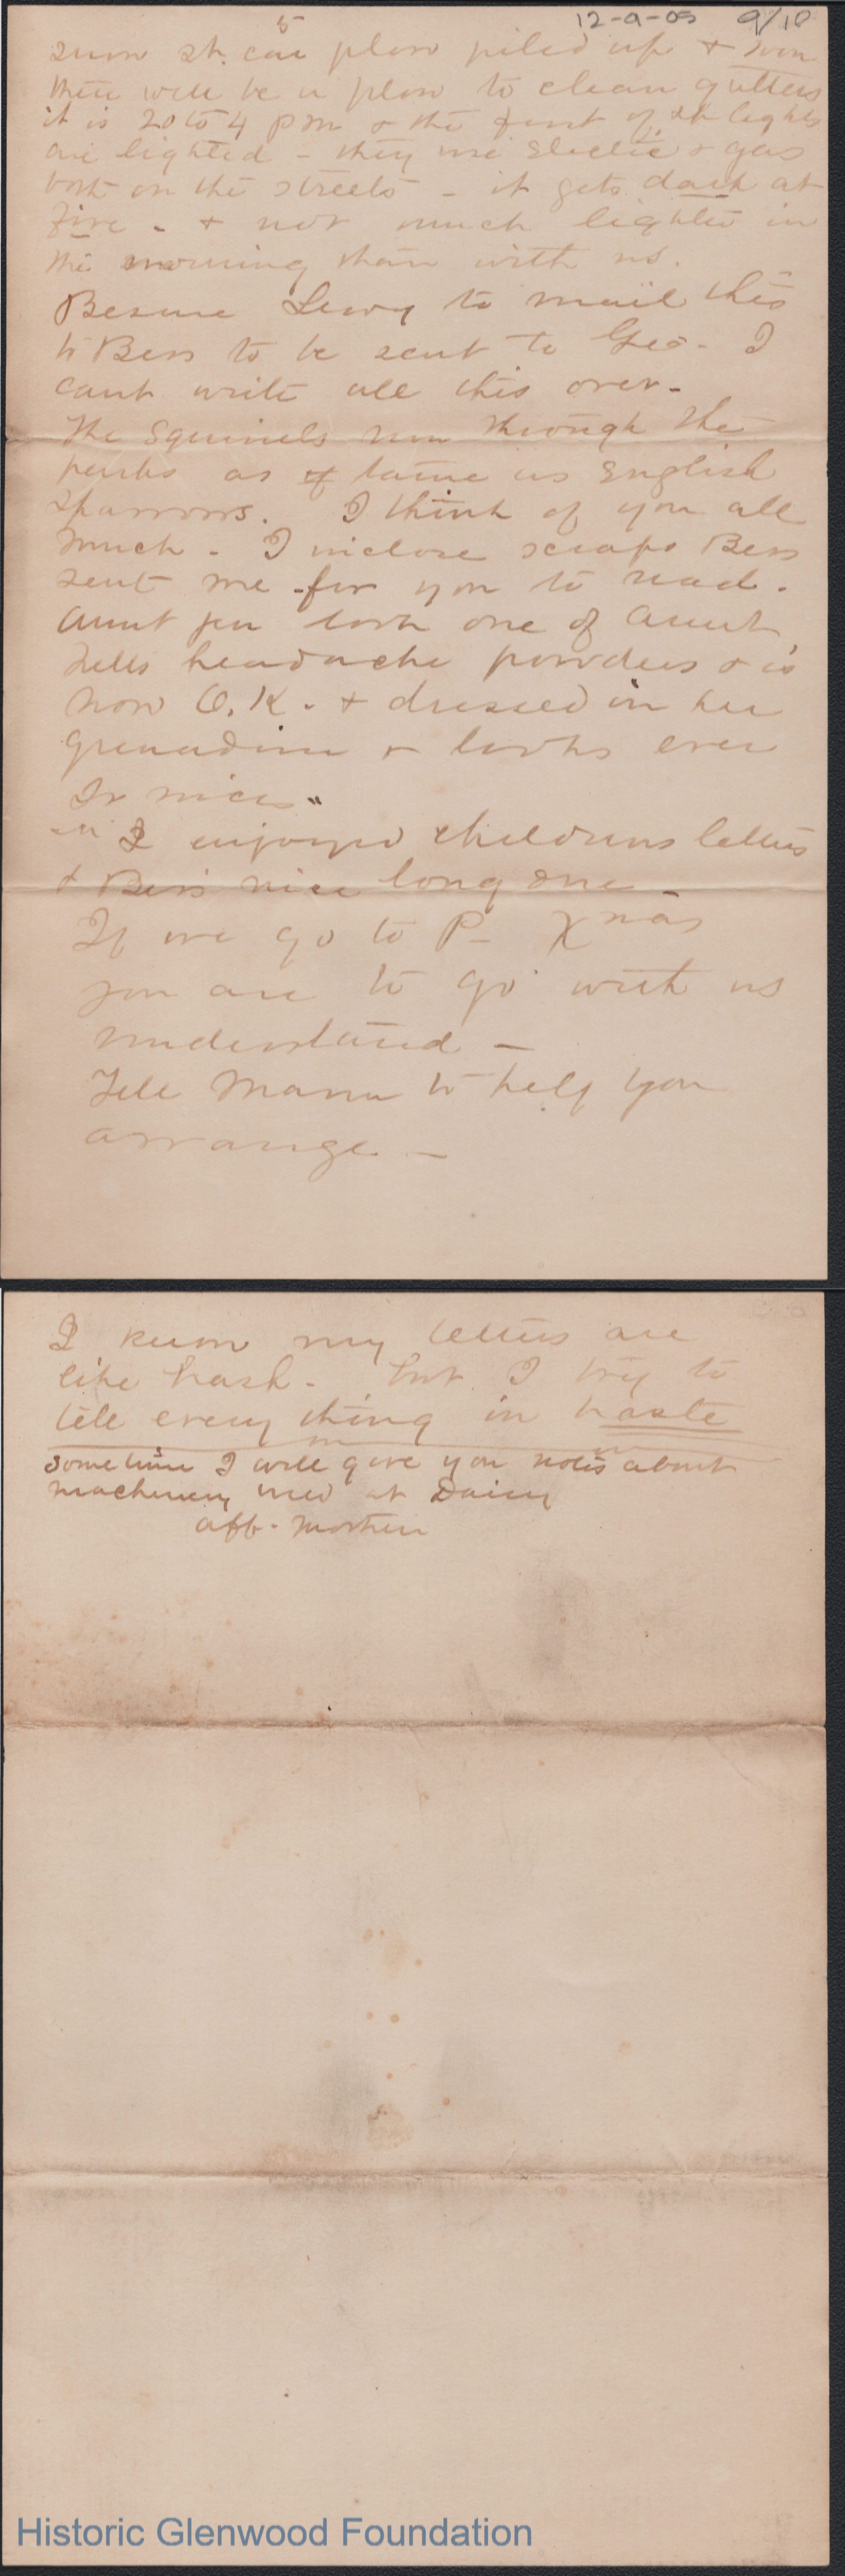 5
12-9-05 9/10
snow st. car plow piled up & soon
there will be a plow to clean gutters
it is 20 to 4 pm & the first of st lights
are lighted - they use Electric & gas
both on the streets - it gets dark at
five - & not much lighter in
the morning than with us.
Besure Leroy to mail this
to Bess to be sent to Geo - I
cant write all this over -
The Squirrels run through the
parks as tame as English
sparrows. I think of you all
much - I inclose scraps Bess
sent me - for you to read -
Aunt Jen took one of Aunt
Nells headache powders & is
now O.K. - & dressed in her
grenadine & looks ever
so nice
I enjoyed childrens letters
& Bess's nice long one -
If we go to P - Xmas
you are to go with us
understand -
Tell Mama to help you
arrange -
I know my letters are
like hash - but I try to
tell every thing in haste
sometime I will give you notes about
machinery used at Daisy
aff - Mother
Historic Glenwood Foundation